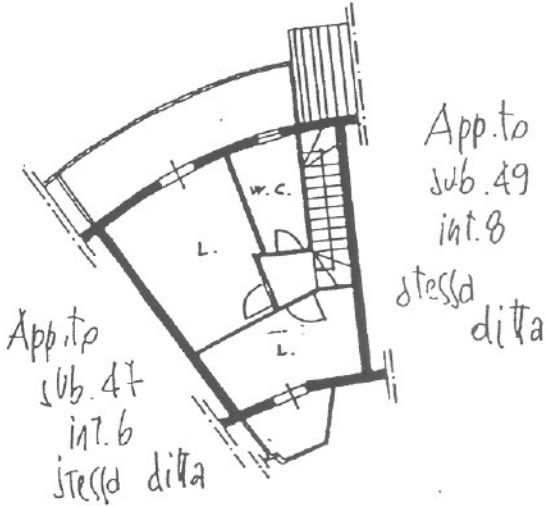 App.to
sub.49
int.8
stessa
ditta
W.C.
L.
L.
App.to
sub.47
int.6
stessa ditta